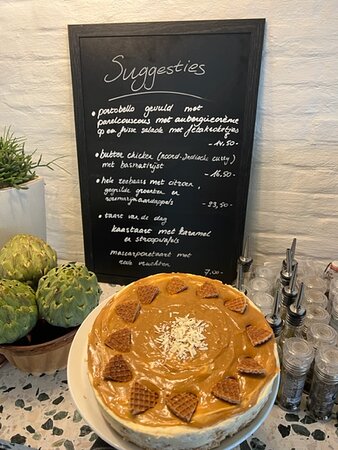 Suggesties
• portobello gevuld met
parelcouscous met auberginecrème
op een frisse salade met fetakroketjes
-14,50-
• butter chicken (noord-Indische curry)
met basmatirijst
-16,50
• hele zeebaars met citroen,
gegrilde groenten en
rozemarijnaardappels
-23,50
• taart van de dag
kaastaart met karamel
en stroopwafels
mascarponetaart met
rode vruchten
7,00-